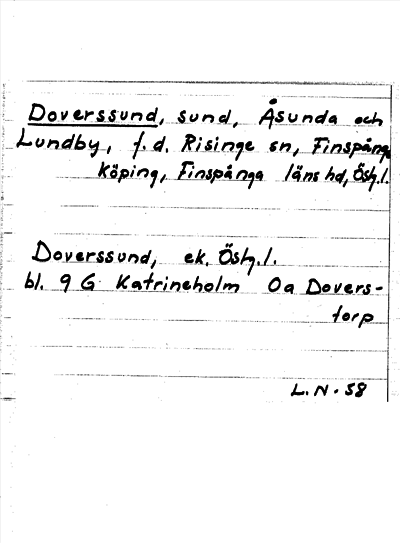 Doverssund, sund, Åsunda och
Lundby, f.d. Risinge sn, Finspånga
köping, Finspånga läns hd, Östg.l.
Doverssund, ek. Östg.l.
bl. 9 G Katrineholm 0a Dovers-
torp
L.N. 58